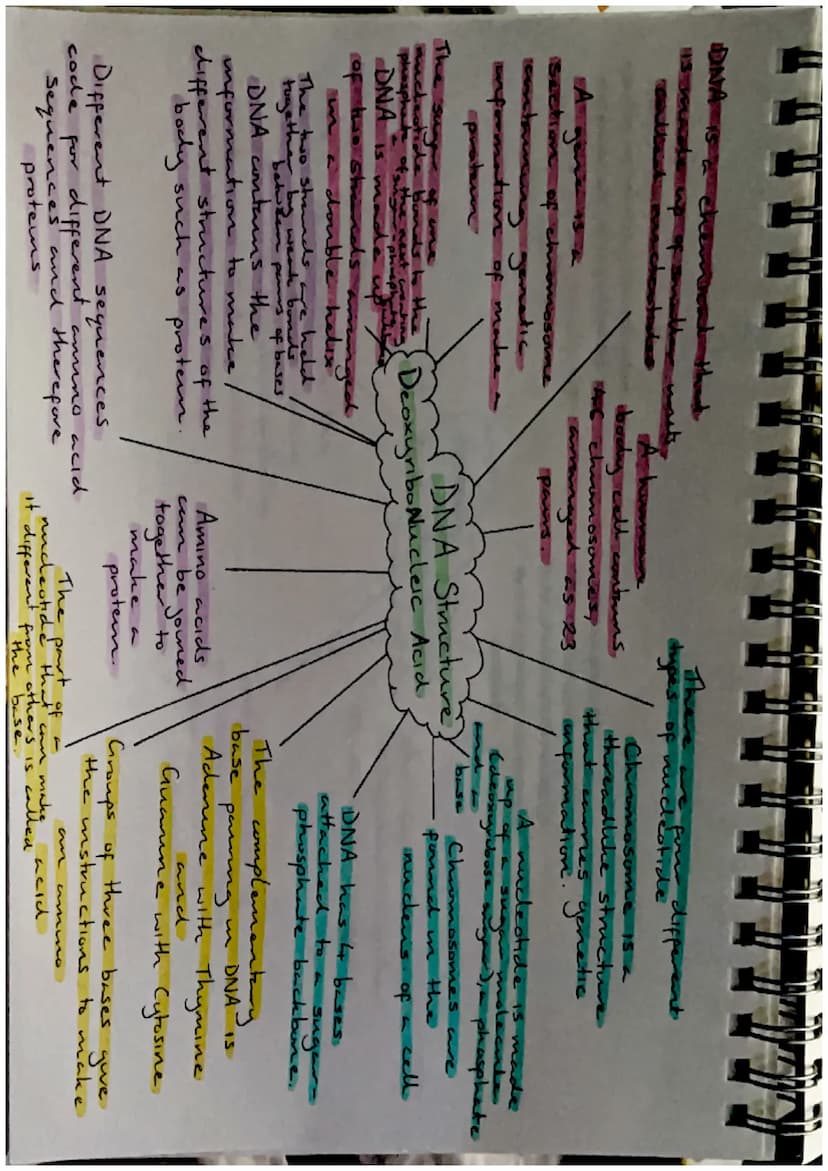 DNA is a chemical that
is made up of smaller units
called nucleotides
A gene is a
section of chromosome
containing genetic
information of make a
protein
The sugar of one
nucleotide bonds to the
phosphate of the next creating
a sugar-phosphate
DNA is made up
of two strands arranged
in a double helix
The two strands are held
together by weak bonds
between pairs of bases
DNA contains the
information to make
different structures of the
body such as protein.
Different DNA sequences
code for different amino acid
sequences and therefore
proteins
A human
body cell contains
46 chromosomes,
arranged as 23
pairs.
DNA Structure
Deoxyribo Nucleic Acid
Amino acids
can be joined
together to
make a
protein.
There are four different
types of nucleotide
Chromosome is a
threadlike structure
that carries genetic
information.
A nucleotide is made
up of a sugar molecule
(deoxyribose sugar), a phosphate
and a base
Chromosomes are
found in the
nucleus of a cell
DNA has 4 bases
attached to a sugar-
phosphate backbone.
The complementary
base pairing in DNA is
Adenine with Thymine
and
Guanine with Cytosine
Groups of three bases give
the instructions to make
an amino acid
The part of a
nucleotide that can make
it different from others is called
the base.